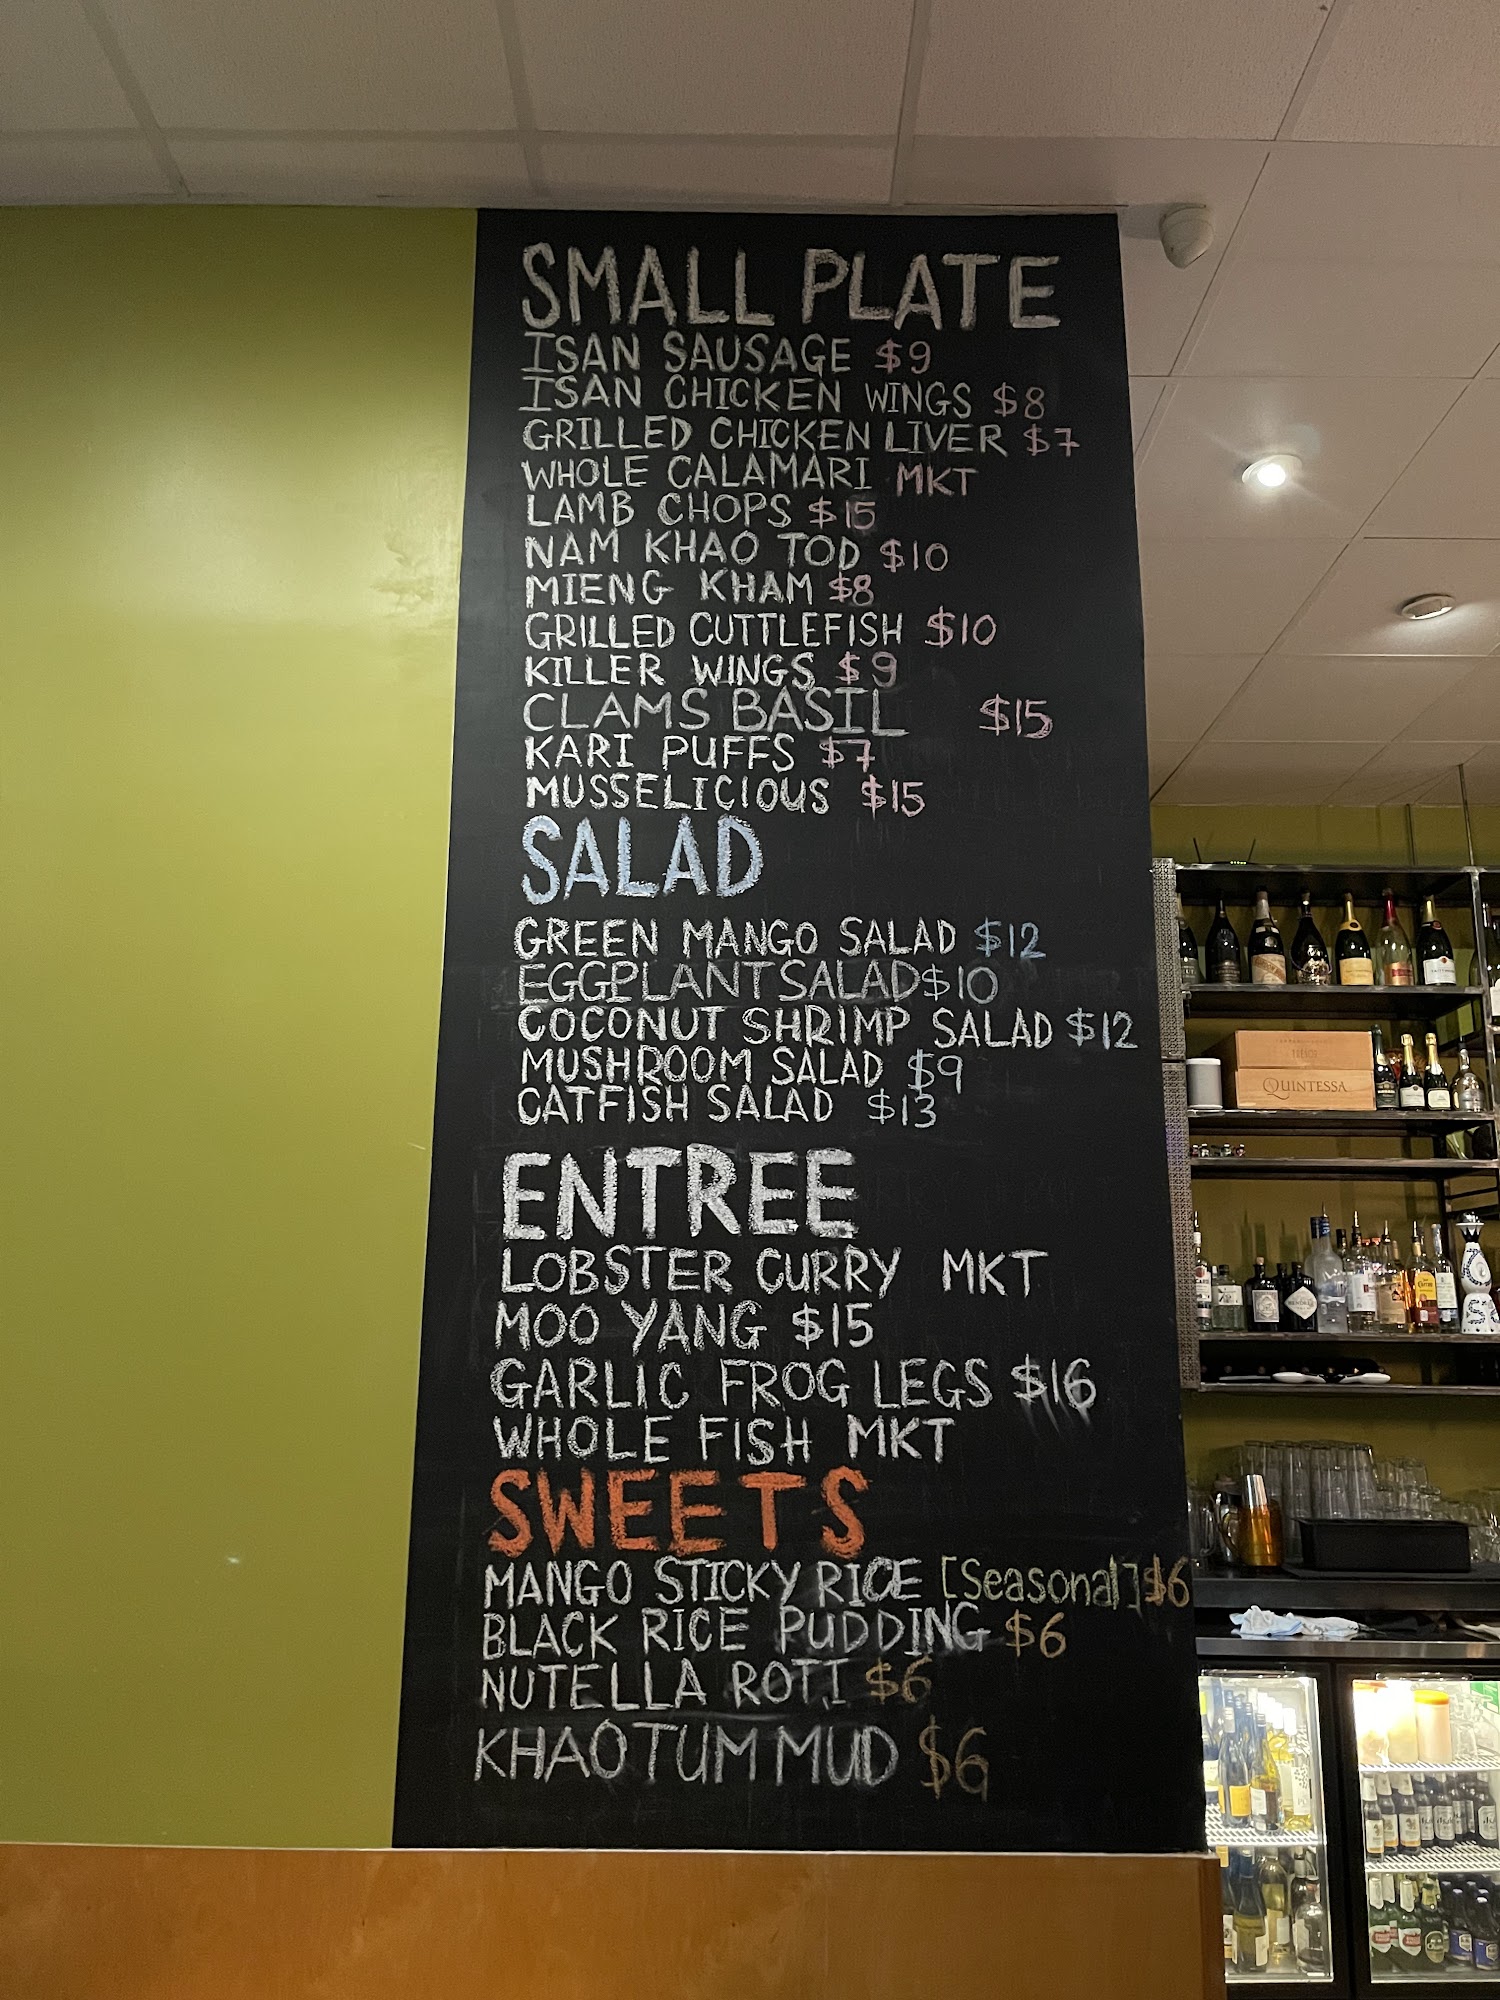 SMALL PLATE
ISAN SAUSAGE $9
ISAN CHICKEN WINGS $8
GRILLED CHICKEN LIVER $7
WHOLE CALAMARI MKT
LAMB CHOPS $15
NAM KHAO TOD $10
MIENG KHAM $8
GRILLED CUTTLEFISH $10
KILLER WINGS $9
CLAMS BASIL $15
KARI PUFFS $7
MUSSELICIOUS $15
SALAD
GREEN MANGO SALAD $12
EGGPLANT SALAD $10
COCONUT SHRIMP SALAD $12
MUSHROOM SALAD $9
CATFISH SALAD $13
ENTREE
LOBSTER CURRY MKT
MOO YANG $15
GARLIC FROG LEGS $16
WHOLE FISH MKT
SWEETS
MANGO STICKY RICE [Seasonal] $6
BLACK RICE PUDDING $6
NUTELLA ROTI $6
KHAO TUM MUD $6
QUINTESSA